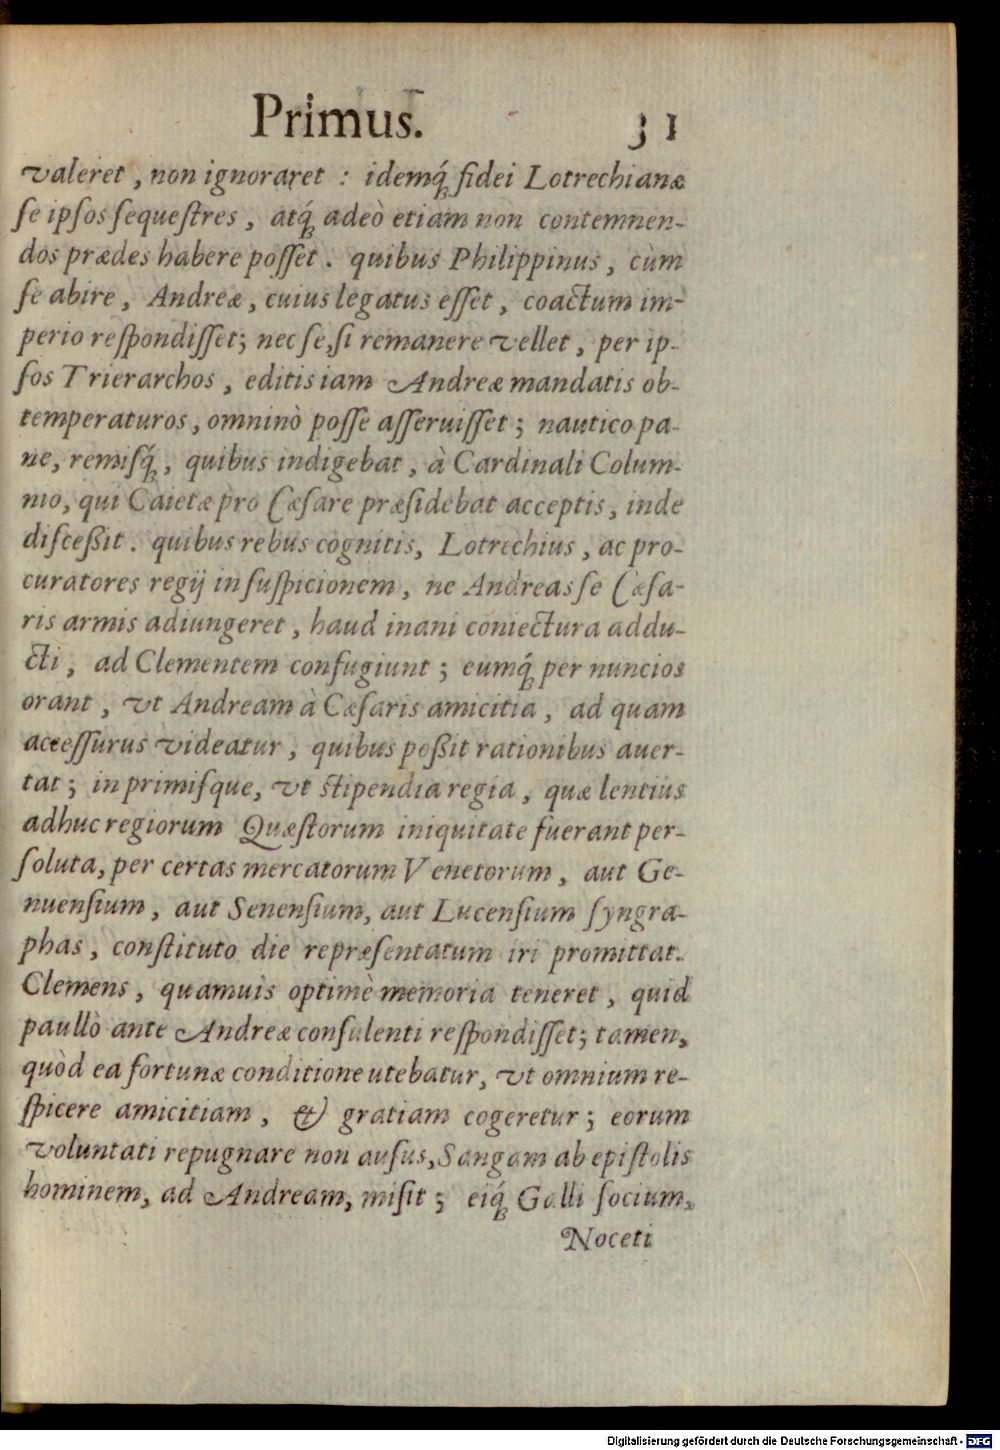 Primus. 31
valeret, non ignoraret : idemq́; fidei Lotrechianæ
se ipsos sequestres, atq́; adeò etiam non contemnen-
dos prædes habere posset. quibus Philippinus, cùm
se abire, Andreæ, cuius legatus esset, coactum im-
perio respondisset; nec se, si remanere vellet, per ip-
sos Trierarchos, editis iam Andreæ mandatis ob-
temperaturos, omninò posse asseruisset; nautico pa-
ne, remisq́;, quibus indigebat, à Cardinali Colum-
nio, qui Caietæ pro Cæsare præsidebat acceptis, inde
disceßit. quibus rebus cognitis, Lotrechius, ac pro-
curatores regij in suspicionem, ne Andreas se Cæsa-
ris armis adiungeret, haud inani coniectura addu-
cti, ad Clementem confugiunt; eumq́; per nuncios
orant, vt Andream à Cæsaris amicitia, ad quam
accessurus videatur, quibus poßit rationibus auer-
tat; in primisque, vt stipendia regia, quæ lentiùs
adhuc regiorum Quæstorum iniquitate fuerant per-
soluta, per certas mercatorum Venetorum, aut Ge-
nuensium, aut Senensium, aut Lucensium syngra-
phas, constituto die repræsentatum iri promittat.
Clemens, quamuìs optimè memoria teneret, quid
paullò ante Andreæ consulenti respondisset; tamen,
quòd ea fortunæ conditione utebatur, vt omnium re-
spicere amicitiam, & gratiam cogeretur; eorum
voluntati repugnare non ausus, Sangam ab epistolis
hominem, ad Andream, misit; eiq́; Galli socium,
Noceti
Digitalisierung gefördert durch die Deutsche Forschungsgemeinschaft - DFG